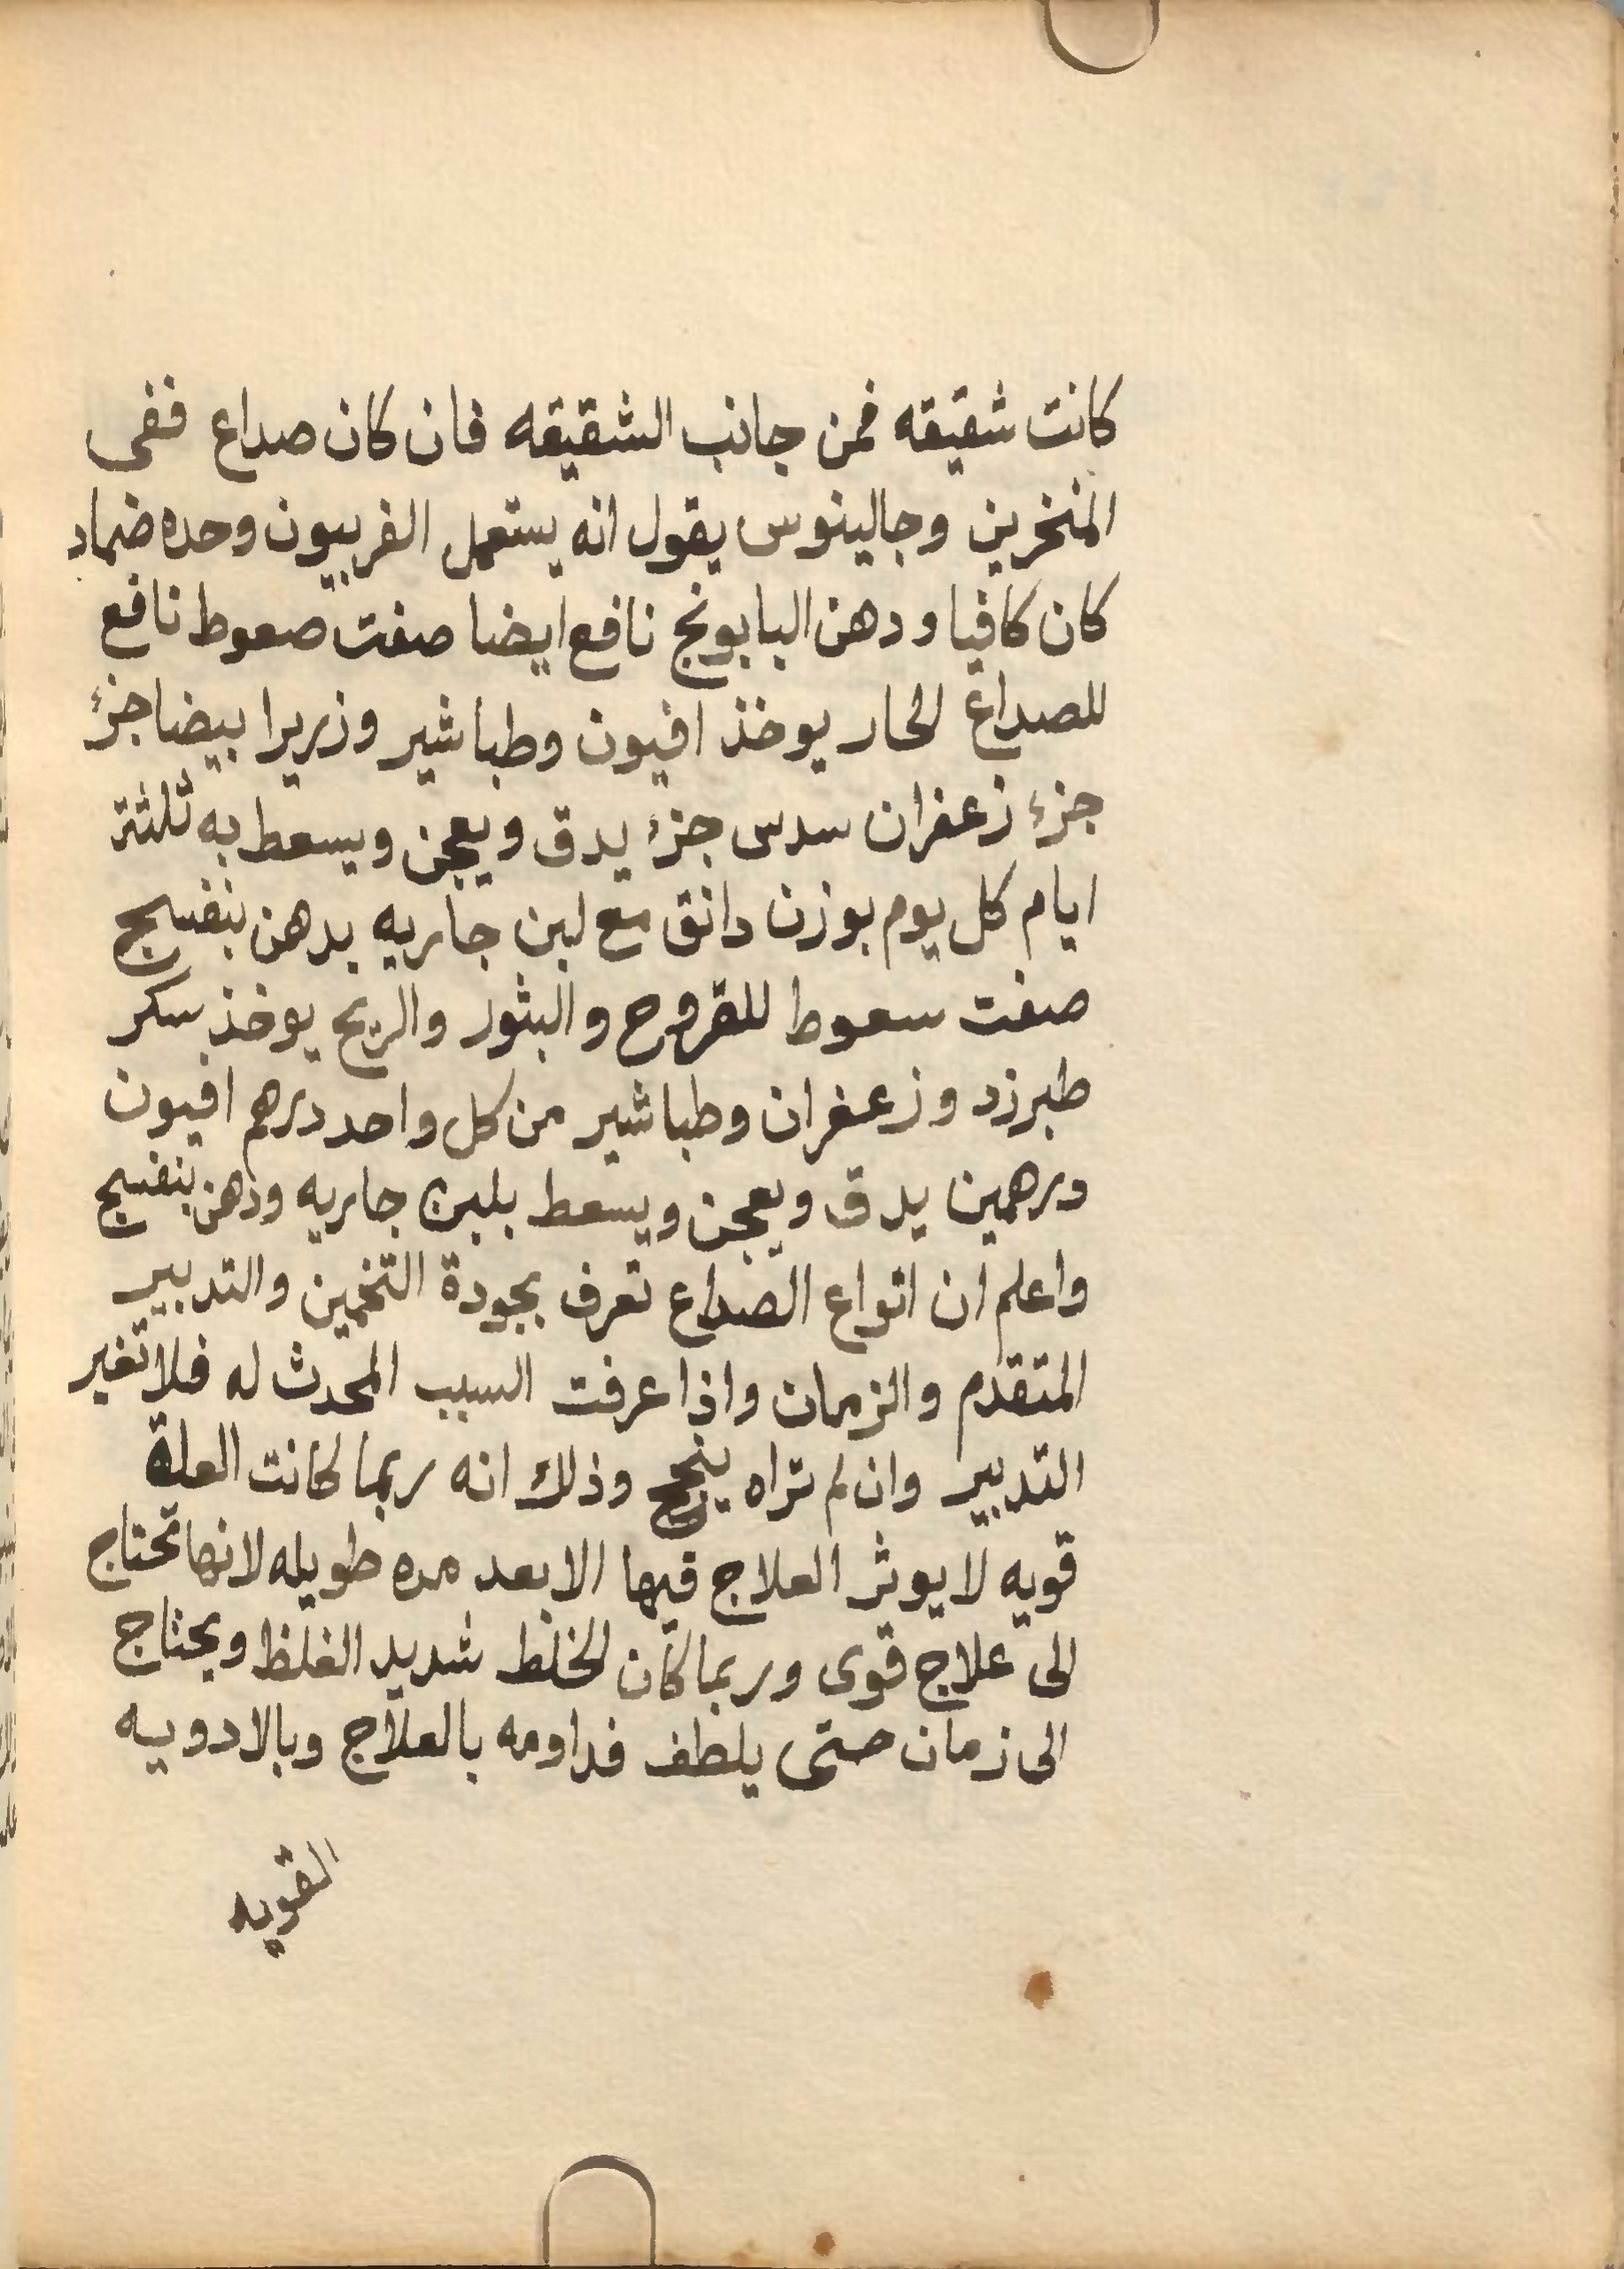 كانت شقيقه فمن جانب الشقيقه فان كان صداع ففى
المنخرين وجالينوس يقول انه يستعمل الفربيون وحده ضماد
كان كافيا ودهن البابونج نافع ايضا صفت صعوط نافع
للصداع الحار يوخذ افيون وطباشير وزريرا بيضا جزء
جزء زعفران سدس جزء يدق ويعجن ويسعط به ثلثة
ايام كل يوم بوزن دانق مع لبن جاريه بدهن بنفسج
صفت سعوط للقروح والبثور والريح يوخذ سكر
طبرزد وزعفران وطباشير من كل واحد درهم افيون
درهمين يدق ويعجن ويسعط بلبن جاريه ودهن بنفسج
واعلم ان انواع الصداع تعرف بجودة التخمين والتدبير
المتقدم والزمان واذا عرفت السبب المحدث له فلا تغير
التدبير وان لم تراه ينجح وذلك انه ربما كانت العلة
قويه لا يوثر العلاج فيها الا بعد مده طويله لانها تحتاج
الى علاج قوى وربما كان الخلط شديد الغلظ ويحتاج
الى زمان حتى يلطف فداومه بالعلاج وبالادويه
القويه